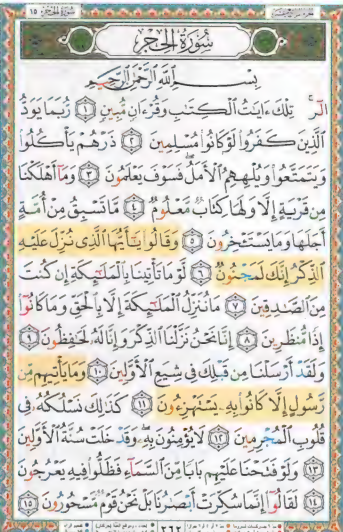 سُورَةُ الحِجْرِ
بِسْمِ اللَّهِ الرَّحْمَٰنِ الرَّحِيمِ
الٓر ۚ تِلْكَ ءَايَٰتُ ٱلْكِتَٰبِ وَقُرْءَانٍ مُّبِينٍ ١ رُّبَمَا يَوَدُّ
ٱلَّذِينَ كَفَرُوا۟ لَوْ كَانُوا۟ مُسْلِمِينَ ٢ ذَرْهُمْ يَأْكُلُوا۟
وَيَتَمَتَّعُوا۟ وَيُلْهِهِمُ ٱلْأَمَلُ ۖ فَسَوْفَ يَعْلَمُونَ ٣ وَمَآ أَهْلَكْنَا
مِن قَرْيَةٍ إِلَّا وَلَهَا كِتَابٌ مَّعْلُومٌ ٤ مَّا تَسْبِقُ مِنْ أُمَّةٍ
أَجَلَهَا وَمَا يَسْتَـْٔخِرُونَ ٥ وَقَالُوا۟ يَٰٓأَيُّهَا ٱلَّذِى نُزِّلَ عَلَيْهِ
ٱلذِّكْرُ إِنَّكَ لَمَجْنُونٌ ٦ لَّوْ مَا تَأْتِينَا بِٱلْمَلَٰٓئِكَةِ إِن كُنتَ
مِنَ ٱلصَّٰدِقِينَ ٧ مَا نُنَزِّلُ ٱلْمَلَٰٓئِكَةَ إِلَّا بِٱلْحَقِّ وَمَا كَانُوٓا۟
إِذًا مُّنظَرِينَ ٨ إِنَّا نَحْنُ نَزَّلْنَا ٱلذِّكْرَ وَإِنَّا لَهُۥ لَحَٰفِظُونَ ٩
وَلَقَدْ أَرْسَلْنَا مِن قَبْلِكَ فِى شِيَعِ ٱلْأَوَّلِينَ ١٠ وَمَا يَأْتِيهِم مِّن
رَّسُولٍ إِلَّا كَانُوا۟ بِهِۦ يَسْتَهْزِءُونَ ١١ كَذَٰلِكَ نَسْلُكُهُۥ فِى
قُلُوبِ ٱلْمُجْرِمِينَ ١٢ لَا يُؤْمِنُونَ بِهِۦ ۖ وَقَدْ خَلَتْ سُنَّةُ ٱلْأَوَّلِينَ
١٣ وَلَوْ فَتَحْنَا عَلَيْهِم بَابًا مِّنَ ٱلسَّمَآءِ فَظَلُّوا۟ فِيهِ يَعْرُجُونَ
١٤ لَقَالُوٓا۟ إِنَّمَا سُكِّرَتْ أَبْصَٰرُنَا بَلْ نَحْنُ قَوْمٌ مَّسْحُورُونَ ١٥
٢٦٢